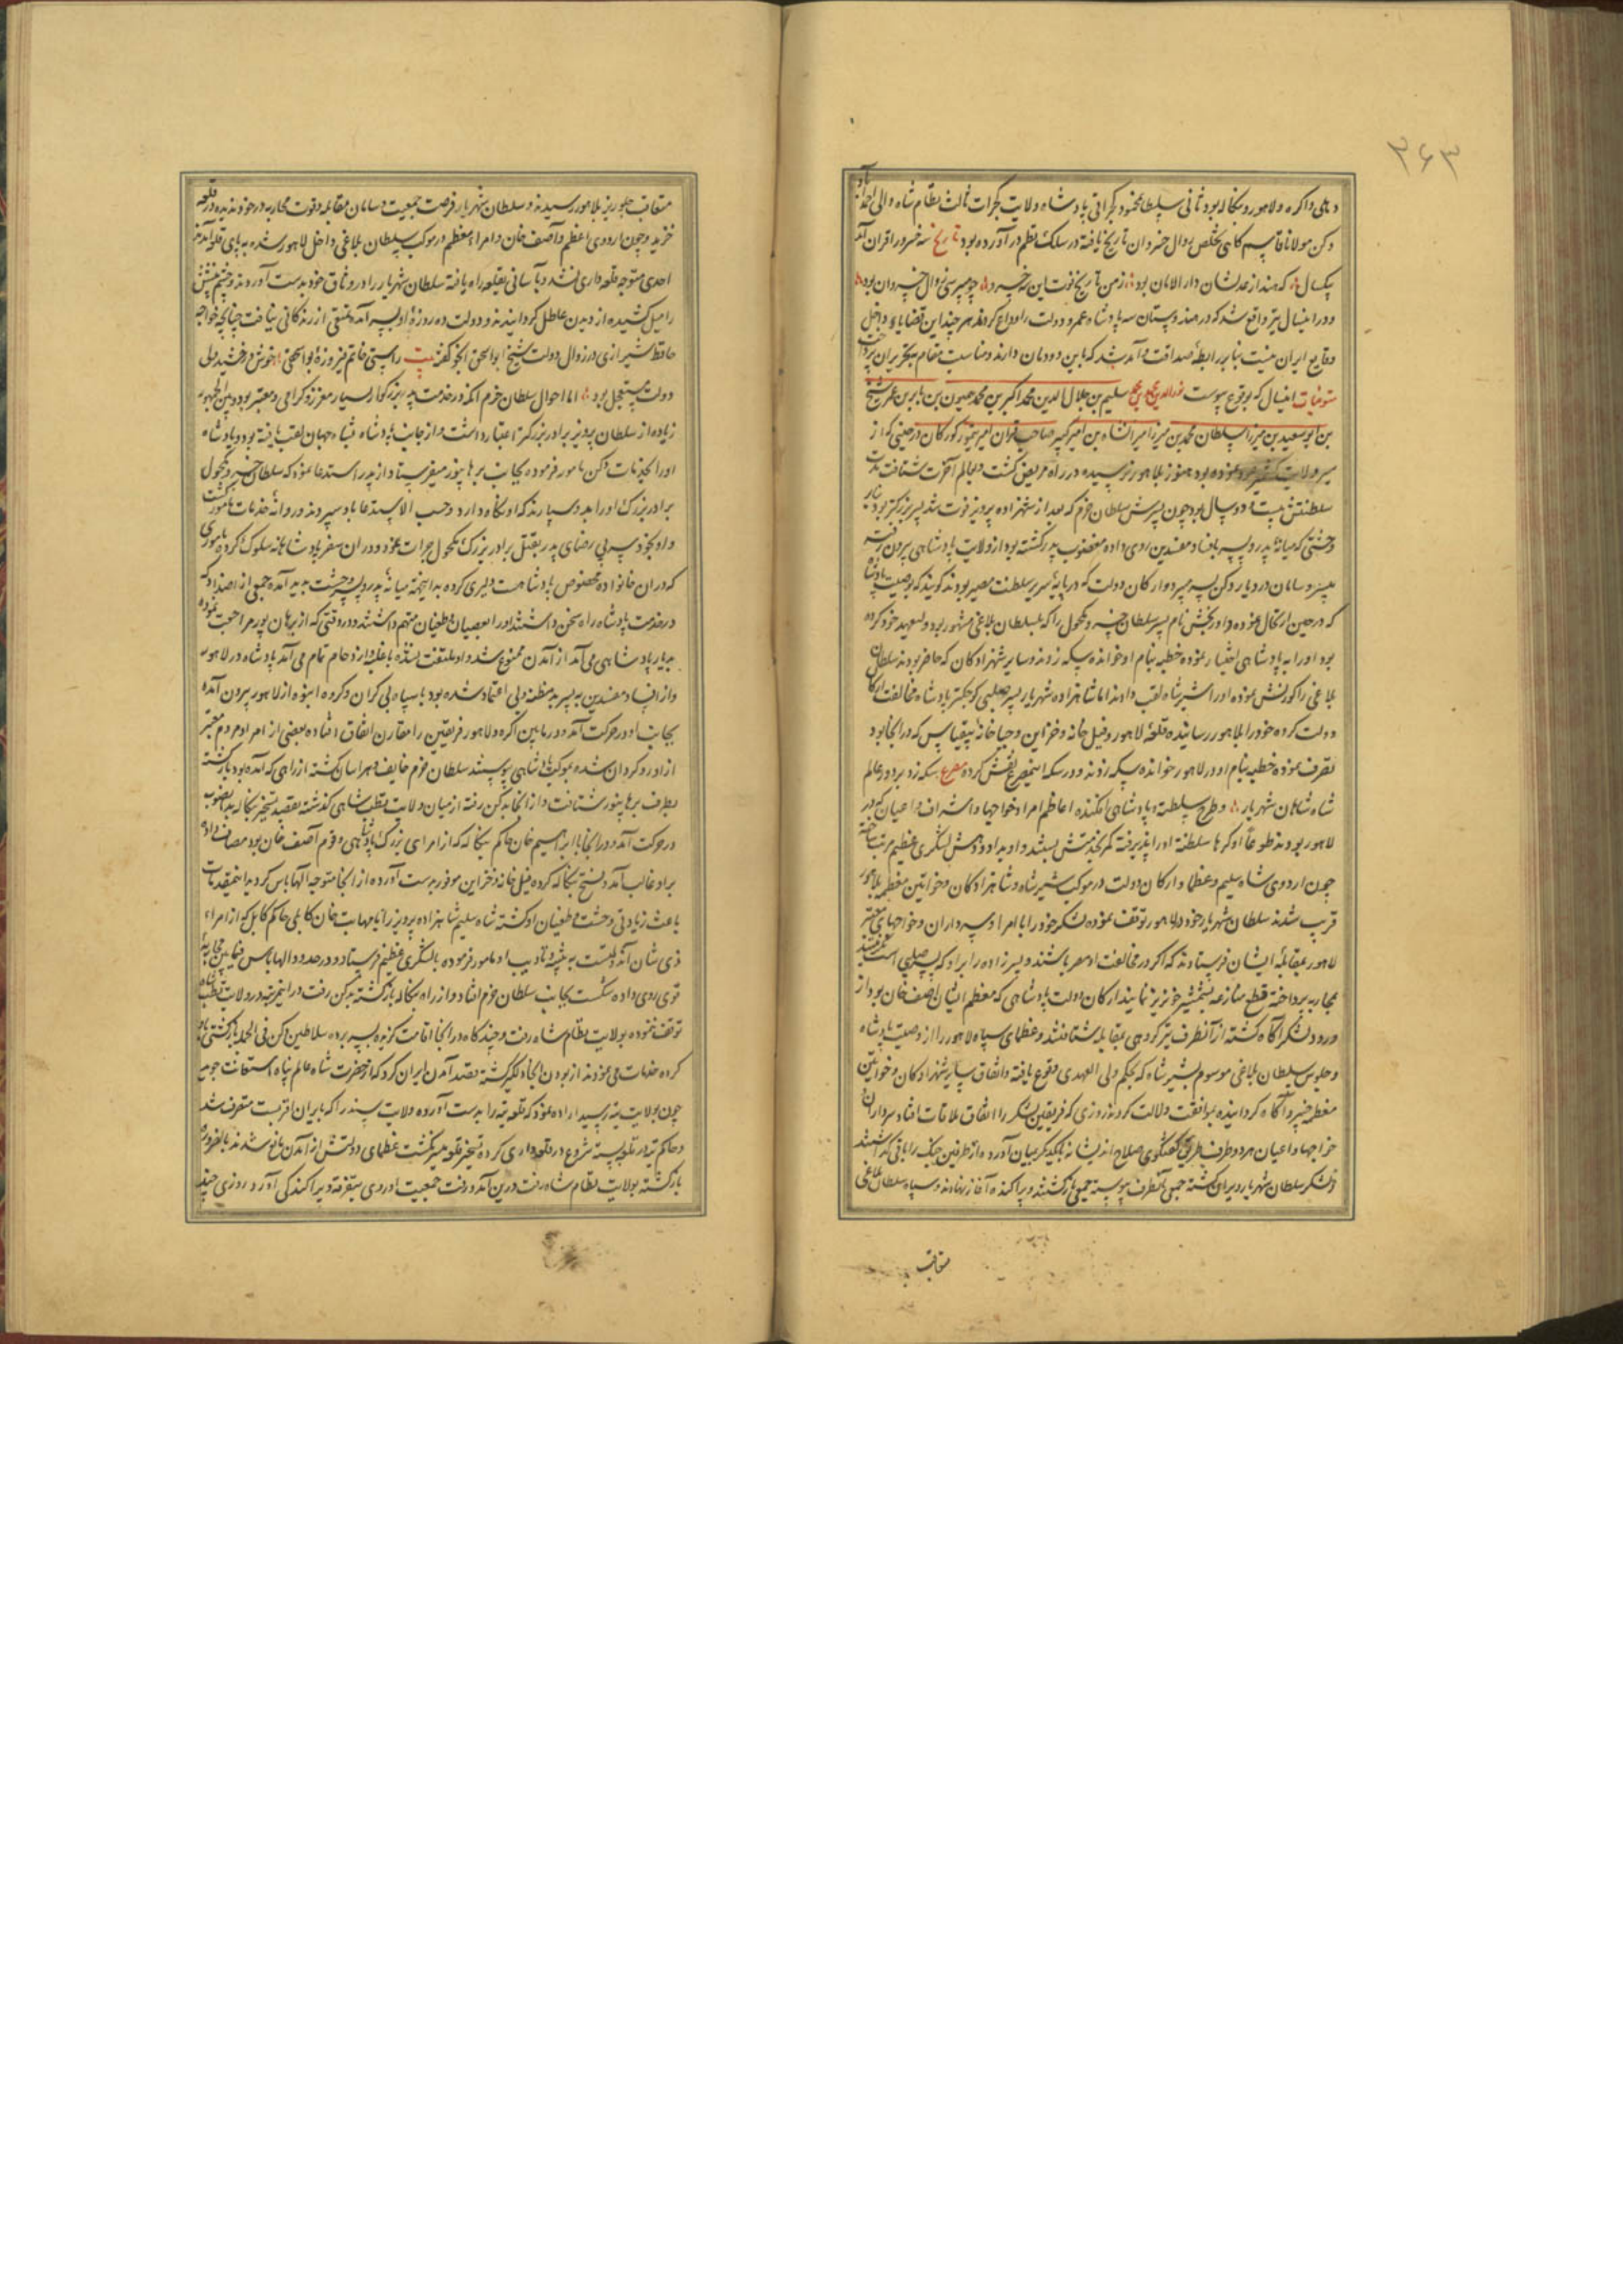 ۲۶۳
دهلی و اکره و لاهور و بنکاله بود ثانی سلطان محمود کجراتی پادشاه ولایت کجرات ثالث نظام شاه والی احمداباد
دکن مولانا قاسم کاهی تخلص زوال خسروان تاریخ یافته در سلک نظم در آورده بود تاریخ سه خسرو را قران آمد
بیکسال که هند از عدلشان دار الامان بود ز من تاریخ فوت این سه خسرو چو میپرسی زوال خسروان بود
و در اینسال نیز واقع شد که در هندوستان سه پادشاه عمر و دولت را وداع کردند هر چند این قضایا داخل
وقایع ایران نیست بنابر رابطه صداقت و آمد شد که باین دودمان دارند و مناسبت مقام بتحریر آن پرداخت
متوفیات اینسال که بوقوع پیوست سلیم بن جلال الدین محمد اکبر بن محمد همیون بن بابر بن عمر شیخ
بن ابو سعید بن میرزا سلطان محمد بن میرزا میرانشاه بن امیر کبیر صاحب قران امیر تیمور کورکان در حینی که از
سیر ولایت کشمیر نموده بود هنوز بلاهور نرسیده در راه مریض کشت و بعالم آخرت شتافت مدت
سلطنتش بیست و دو سال بود چون پسرش سلطان خرم که بعد از شهزاده پرویز فوت شد پسر بزرکتر بود بنابر
وحشتی که میانه پدر و پسر بافساد مفسدین روی داده مغضوب پدر کشته بود از ولایت پادشاهی بیرون رفته
بیسر و سامان در دیار دکن بسر میبرد و ارکان دولت که در پایه سریر سلطنت مصیر بودند کویند که بوصیت پادشاه
که در حین ارتحال نموده داور بخش نام پسر سلطان خسرو مکحول را که بسلطان بلاغی مشهور بود ولیعهد خود کرده
بود او را به پادشاهی اختیار نموده خطبه بنام او خوانده سکه زدند و سایر شهزادکان که حاضر بودند سلطان
بلاغی را کورنش نموده او را شیر شاه لقب دادند اما شاهزاده شهریار پسر صلبی کوچکتر پادشاه مخالفت ارکان
دولت کرده خود را بلاهور رسانیده قلعه لاهور و فیل خانه و خزاین و جباخانه بیقیاس که در انجا بود
تصرف نموده خطبه بنام او در لاهور خوانده سکه زدند و در سکه اینمصرع نقش کرده مصرع سکه زد بر دور عالم
شاه شاهان شهریار و طرح سلطنت و پادشاهی افکنده اعاظم امرا و خواجها و اشراف و اعیان که در
لاهور بودند طوعا او کرها سلطنت او را پذیرفته کمر بخدمتش بستند و او بداد و دهش لشکری عظیم مرتب ساخته
چون اردوی شاه سلیم و عظما و ارکان دولت در موکب شیر شاه و شاهزادکان و خواتین معظمه بلاهور
قریب شدند سلطان شهریار خود در لاهور توقف نموده لشکر خود را با امرا و سپه داران و خواجهای معتبر
لاهور بمقابله ایشان فرستادند که اکر در مخالفت او مصر باشند و پسر زاده را بر او که پسر صلبی است
بمحاربه پرداخته قطع منازعه بشمشیر خونریز نمایند ارکان دولت پادشاهی که معظم ایشان آصف خان بود از
ورود لشکر آکاه کشته از آنطرف نیز کروهی بمقابله شتافتند و عظمای سپاه لاهور را از وصیت پادشاه
و جلوس سلطان بلاغی موسوم بشیر شاه که بحکم ولی العهدی وقوع یافته و اتفاق سایر شهزادکان و خواتین
معظمه خبر و آکاه کردانیده بموافقت دلالت کردند روزی که فریقین لشکر را اتفاق ملاقات افتاد سرداران
خواجها و اعیان هر دو طرف طریق کفتکوی صلاح اندیشانه بیکدیکر بمیان آورده از طرفین جنک را باقی کذاشتند
و لشکر سلطان شهریار ویران کشته جمعی بآنطرف پیوسته جمعی بازکشتند و پراکنده آغاز نهادند و سپاه سلطان بلاغی
متعاقب
متعاقب جلوریز بلاهور رسیدند و سلطان شهریار فرصت جمعیت و سامان مقابله و قوت محاربه در خود ندیده در قلعه
خزید و چون اردوی اعظم و آصف خان و امراء معظم در موکب سلطان بلاغی داخل لاهور شده بپای قلعه آمدند
احدی متوجه قلعه داری نشد و بآسانی بقلعه راه یافته سلطان شهریار را در وثاق خود بدست آوردند و چشم
را میل کشیده از دیدن عاطل کردانیدند و دولت ده روزه او بسر آمده تمتعی از زندکانی نیافت چنانچه خواجه
حافظ شیرازی در زوال دولت شیخ ابو اسحق اینجو کفته بیت راستی خاتم فیروزه بو اسحقی خوش درخشید ولی
دولت مستعجل بود اما احوال سلطان خرم آنکه در خدمت پدر بزرکوار بسیار معزز و کرامی و معتبر بود و بین الجمهور
زیاده از سلطان پرویز برادر بزرکتر اعتبار داشت و از جانب پادشاه بشاه جهان لقب یافته بود و پادشاه
او را بخدمات دکن مامور فرموده بجانب برهانپور میفرستاد از پدر استدعا نمود که سلطان خسرو مکحول
برادر بزرک او را بدو سپارند که او نکاه دارد و حسب الاستدعا باو سپردند و روانه خدمات مامور کشت
و او بخودسری بی رضای پدر بقتل برادر بزرک مکحول جرات نمود و در ان سفر پادشاهانه سلوک کرده
که در ان خانواده مخصوص پادشاهست دلیری کرده بدینجهت میانه پدر و پسر وحشت پدید آمده جمعی از اضداد که
در خدمت پادشاه راه سخن داشتند او را بعصیان و طغیان متهم داشتند و در وقتی که از برهان پور مراجعت نموده
بدربار پادشاهی می آمد از آمدن ممنوع شد و او ملتفت نشده با غلبه و ازدحام تمام می آمد پادشاه در لاهور
و از افساد مفسدین به پسر بدمظنه و بی اعتماد شده بود با سپاه بی کران و کروه انبوه از لاهور بیرون آمده
بجانب او در حرکت آمد و در مابین اکره و لاهور فریقین را مقارن اتفاق افتاده بعضی از امرا و مردم معتبر
از او رو کردان شده بموکب پادشاهی پیوستند سلطان خرم خایف و هراسان کشته از راهی که آمده بود بازکشته
بطرف برهانپور شتافت و از انجا بدکن رفته از میان ولایت قطب شاهی کذشته بقصد تسخیر بنکاله بدانصوب
در حرکت آمد و در انجا با ابراهیم خان حاکم بنکاله که از امرای بزرک پادشاهی و قوم آصف خان بود مصاف داده
بر او غالب آمد و فتح بنکاله کرده فیل خانه و خزاین موفور بدست آورده از انجا متوجه الهاباس کردید اینمقدمات
باعث زیادتی وحشت و طغیان او کشته شاه سلیم شاهزاده پرویز را با مهابت خان کابلی حاکم کابل که از امراء
ذی شان آندولتست به تنبیه و تادیب او مامور فرموده با لشکری عظیم فرستاد و در حدود الهاباس فیمابین محاربه
قوی روی داده شکست بجانب سلطان خرم افتاد و از راه بنکاله بازکشته بدکن رفت در اینمرتبه در ولایت قطب شاه
توقف ننموده بولایت نظام شاه رفت و چند کاه در انجا اقامت کزیده بسر برده سلاطین دکن فی الجمله
کرده خدمات می نمودند از بودن انجا دلکیر کشته بقصد آمدن ایران کرد که از حضرت شاه عالم پناه استعانت جوید
چون بولایت تته رسید اراده نمود که قلعه تته را بدست آورده ولایت سند را که بایران اقربست متصرف شد
و حاکم تته در قلعه بسته شروع در قلعه داری کرده تسخیر قلعه میسر نکشت عظمای دولتش از آمدن مانع شدند بالضروره
بازکشته بولایت نظام شاه رفت در این آمد و رفت جمعیت اردوی بتفرقه و پراکندکی آورد و روزی چند